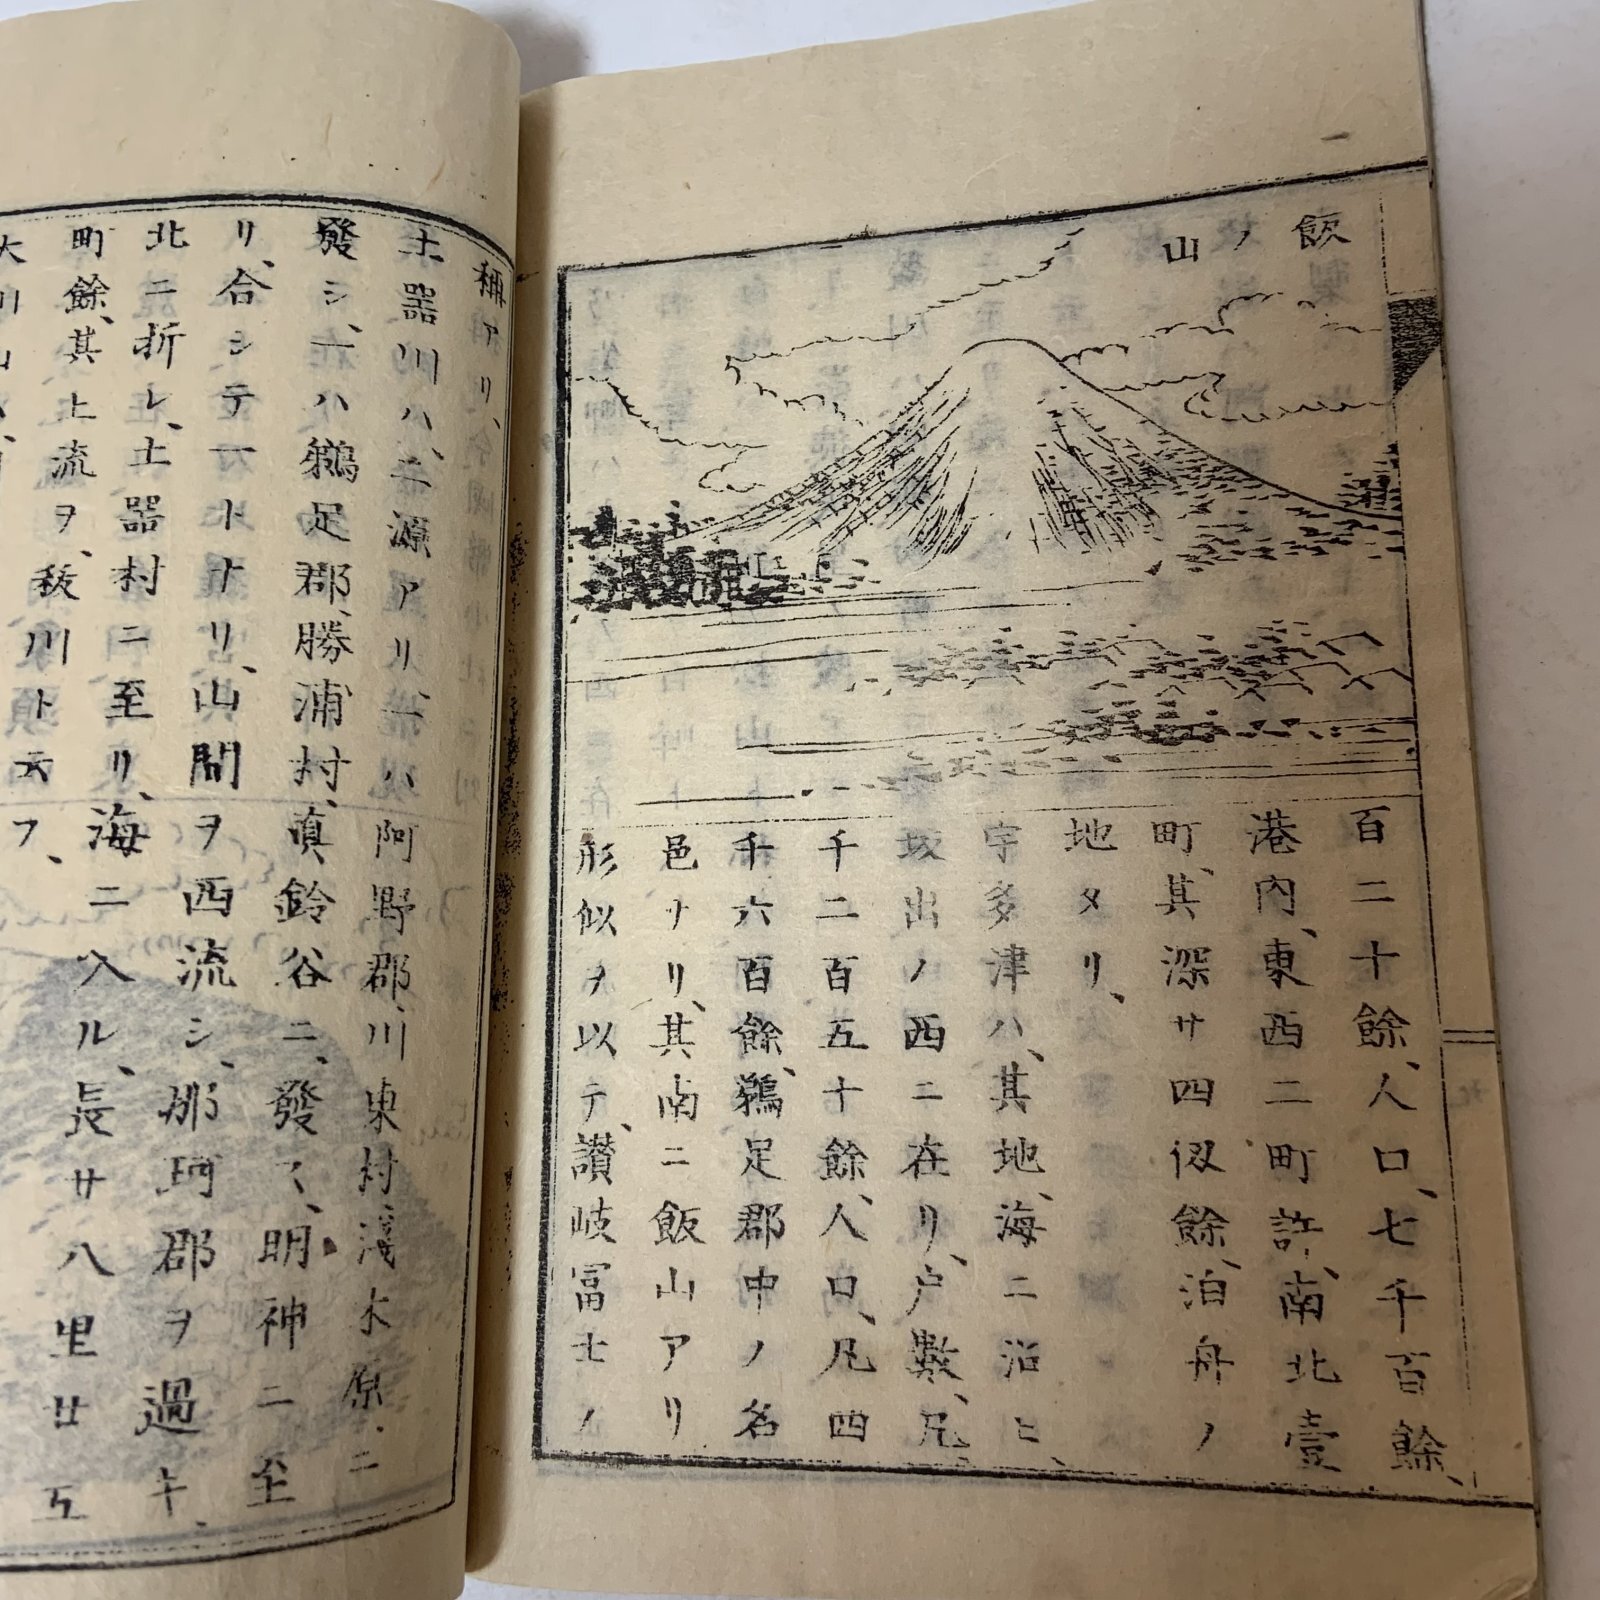 飯ノ山
百二十餘、人口、七千百餘、
港内、東西二町許、南北壹
町、其深サ四仭餘、泊舟ノ
地タリ、
宇多津ハ、其地、海ニ沿ヒ、
坂出ノ西ニ在リ、戸數、凡
千二百五十餘、人口、凡四
千六百餘、鵜足郡中ノ名
邑ナリ、其南ニ飯山アリ
形似ヲ以テ、讃岐冨士ノ
稱アリ、
土器川ハ、二源アリ、一ハ阿野郡、川東村、淺木原、ニ
發シ、一ハ鵜足郡、勝浦村、眞鈴谷ニ、發ス、明神ニ至
リ、合シテ一トナリ、山間ヲ西流シ、那珂郡ヲ過キ、
北ニ折レ、土器村ニ至リ、海ニ入ル、長サ八里廿五
町餘、其上流ヲ、祓川ト云フ、
大川山ハ、